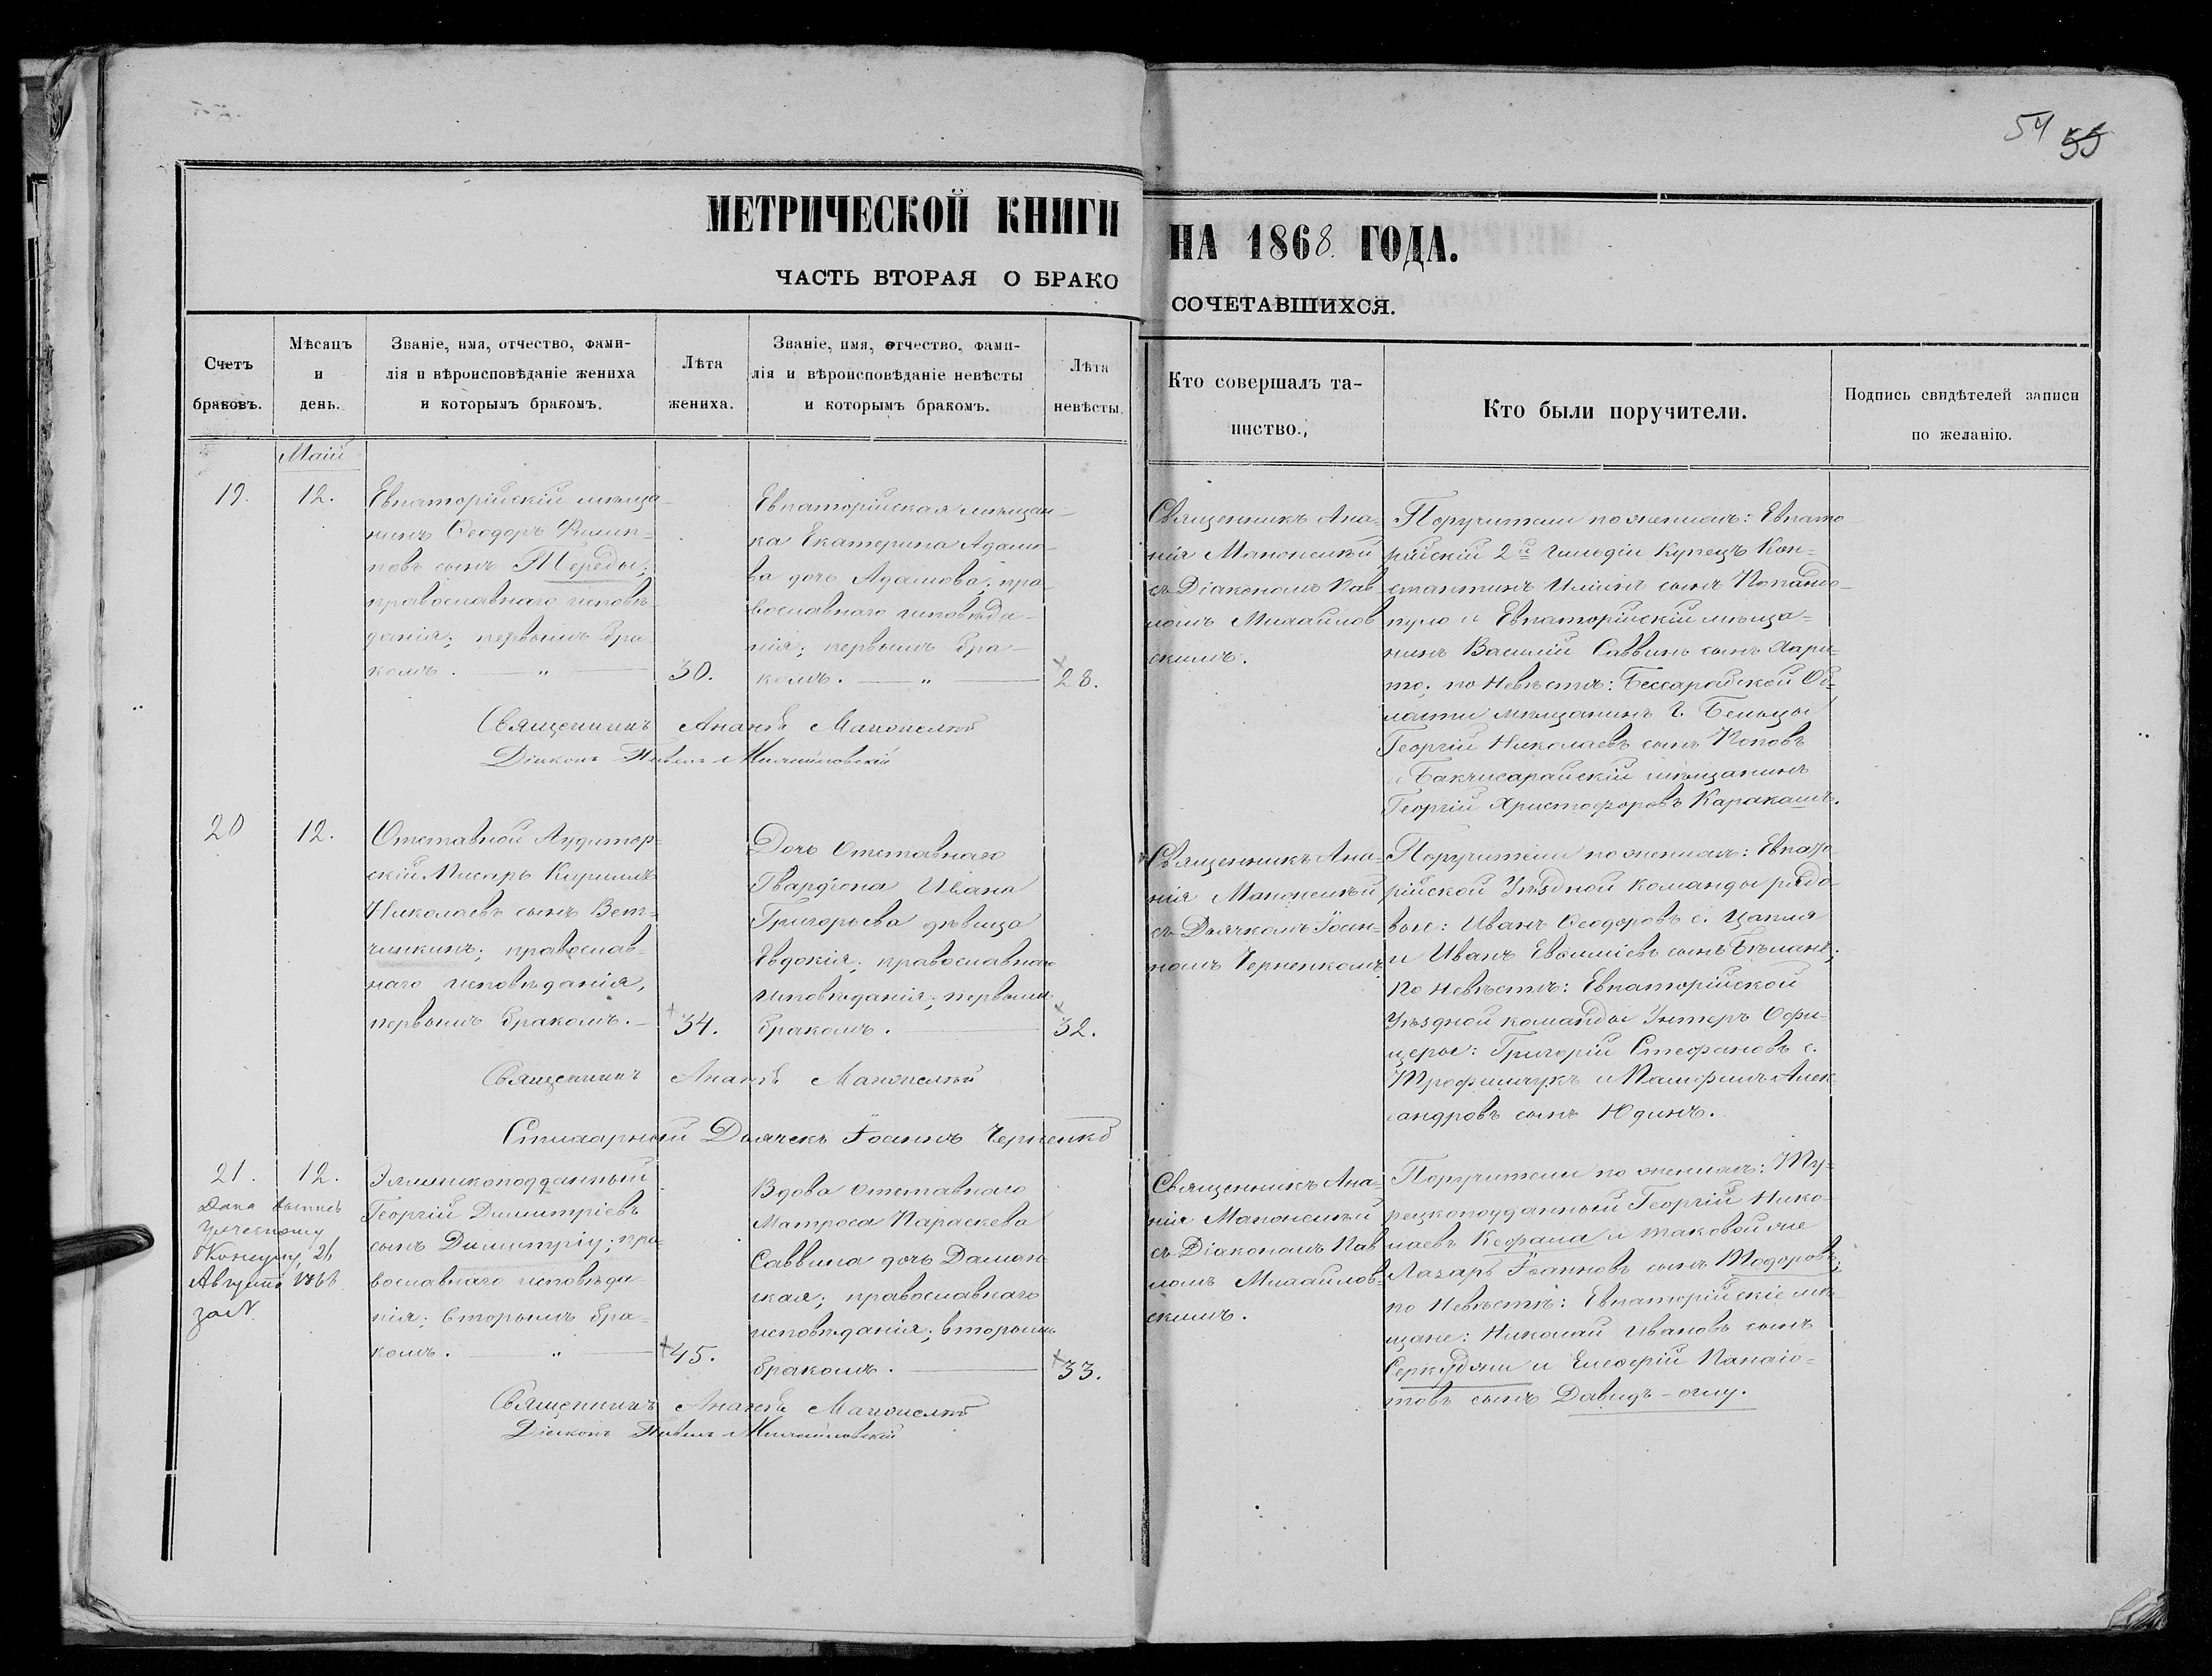 54 55
МЕТРИЧЕСКОЙ КНИГИ НА 1868 ГОДА.
ЧАСТЬ ВТОРАЯ О БРАКОСОЧЕТАВШИХСЯ.
Счетъ
браковъ.
Мѣсяцъ
и
день.
Званіе, имя, отчество, фами-
лія и вѣроисповѣданіе жениха
и которымъ бракомъ.
Лѣта
жениха.
Званіе, имя, отчество, фами-
лія и вѣроисповѣданіе невѣсты
и которымъ бракомъ.
Лѣта
невѣсты.
Кто совершалъ та-
инство.
Кто были поручители.
Подпись свидѣтелей записи
по желанію.
Маій
19.
12.
Евпаторійскій мѣща-
нинъ Ѳеодоръ Филип-
повъ сынъ Переды;
православнаго исповѣ-
данія; первымъ бра-
комъ. — „ —
30.
Евпаторійская мѣщан-
ка Екатерина Адамо-
ва дочь Адамова; пра-
вославнаго исповѣда-
нія; первымъ бра-
комъ. — „ —
28.
Священникъ Ана-
нія
съ Діакономъ Пав-
ломъ Михайлов
скимъ.
Поручители по женихѣ: Евпато-
рійскій 2й гильдіи купецъ Кон-
стантинъ Ильинъ сынъ Попандо-
пуло и Евпаторійскій мѣща-
нинъ Василій Саввинъ сынъ Хари-
то; по невѣстѣ: Бессарабской Об-
ласти мѣщанинъ г. Бельцы
Георгій Николаевъ сынъ Поповъ
и Бакчисарайскій мѣщанинъ
Георгій Христофоровъ Каракашъ.
Священникъ Ананія
Діаконъ Павелъ Михайловскій
20
12.
Отставной Аудитор-
скій Писарь Кириллъ
Николаевъ сынъ Вет-
чинкинъ; православ-
наго исповѣданія,
первымъ бракомъ. —
34.
Дочь отставнаго
Гвардіона Ивана
Григорьева дѣвица
Евдокія; православнаго
исповѣданія; первымъ
бракомъ. —
32.
Священникъ Ана-
нія
съ Дьячкомъ Іоан-
номъ Черненкомъ
Поручители по женихѣ: Евпато-
рійской Уѣздной команды рядо-
вые: Иванъ Ѳеодоровъ с. Цапля
и Иванъ Евѳиміевъ сынъ Бѣланъ;
по невѣстѣ: Евпаторійской
Уѣздной команды Унтеръ Офи-
церы: Григорій Стефановъ с.
Трофимчукъ и Памфилъ Алек-
сандровъ сынъ Юдинъ.
Священникъ Ананія
Стихарный Дьячекъ Іоаннъ Черненко
21.
12.
Дана выпись
Греческому
Консулу, 21
Августа 1868
за N
Эллиникоподданный
Георгій Димитріевъ
сынъ Димитріу; пра-
вославнаго исповѣда-
нія; вторымъ бра-
комъ. — „ —
45.
Вдова отставнаго
Матроса Параскева
Саввина дочь
православнаго
исповѣданія; вторымъ
бракомъ. —
33.
Священникъ Ана-
нія
съ Діакономъ Пав
ломъ Михайлов-
скимъ.
Поручители по женихѣ: Ту-
рецкоподданный Георгій Нико-
лаевъ Кефала и таковой же
Лазарь Іоанновъ сынъ Тодоровъ;
по невѣстѣ: Евпаторійскіе мѣ-
щане: Николай Ивановъ сынъ
Серкудяни и Елевѳерій Панаіо-
товъ сынъ Давидъ-оглу.
Священникъ Ананія
Діаконъ Павелъ Михайловскій